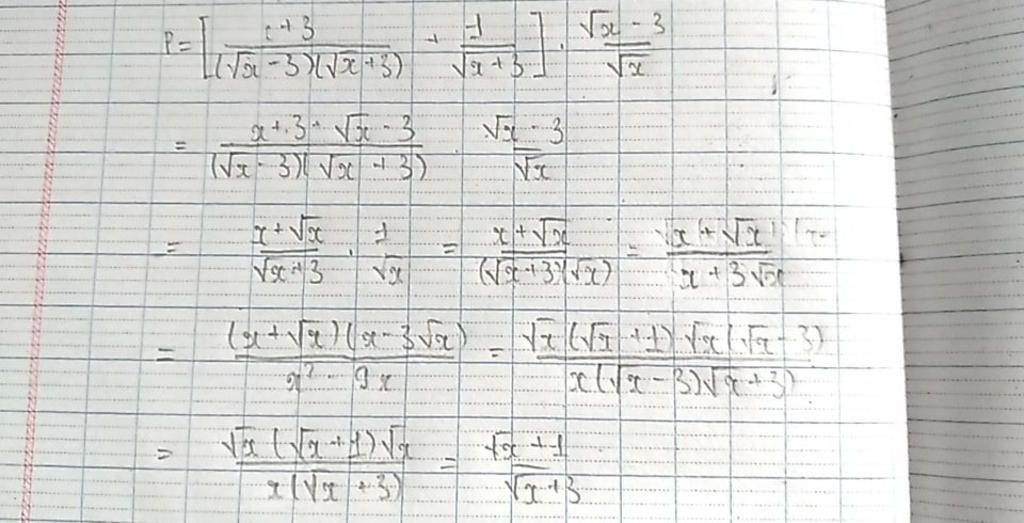 P = [ x+3 / (√x - 3)(√x + 3) + 1 / √x + 3 ] . √x - 3 / √x
= x + 3 + √x - 3 / (√x - 3)(√x + 3) . √x - 3 / √x
= x + √x / √x + 3 . 1 / √x = x + √x / (√x + 3)(√x) = x + √x / x + 3√x
= (x + √x)(x - 3√x) / x² - 9x = √x(√x + 1)√x(√x - 3) / x(√x - 3)√x + 3)
= √x(√x + 1)√x / x(√x + 3) = √x + 1 / √x + 3